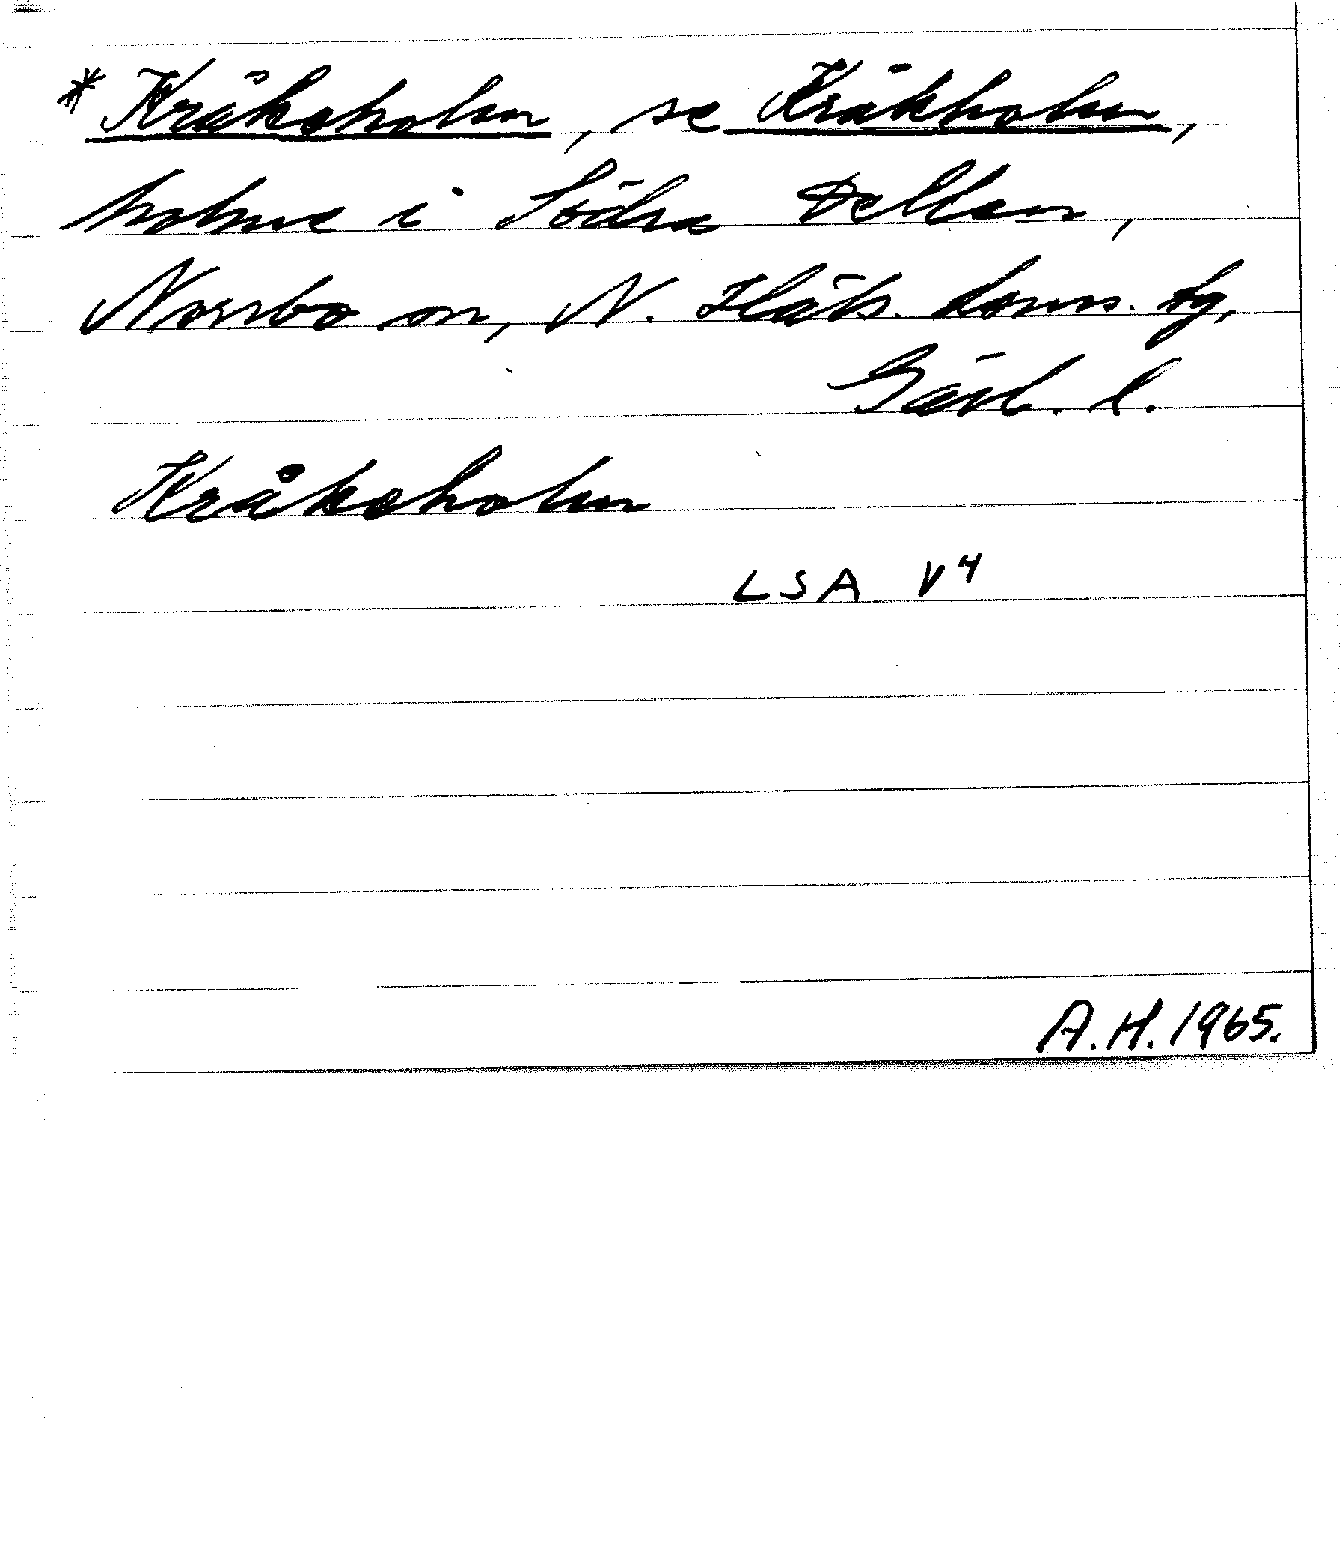 *Kråksholm, se Kräkholm,
holme i Södra Dellen,
Norrbo sn, N. Häls. doms. tg,
Gävl. l.
Kråksholm
LSA V4
A.H. 1965.